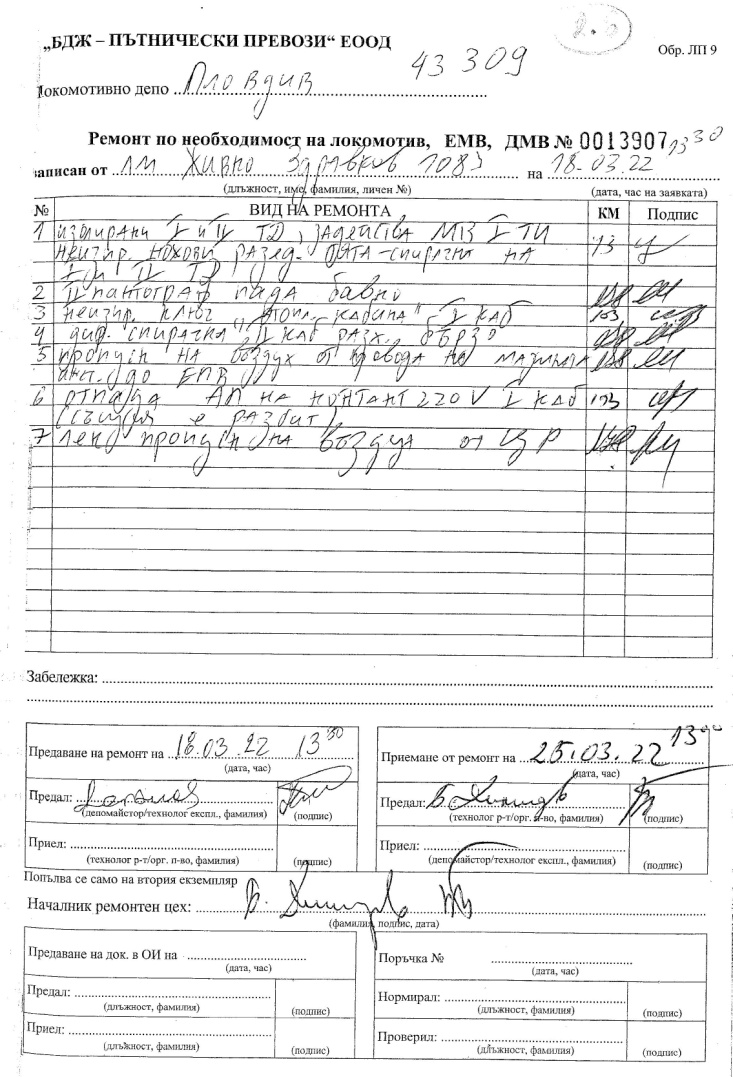 „БДЖ – ПЪТНИЧЕСКИ ПРЕВОЗИ“ ЕООД
43 309
Обр. ЛП 9
Локомотивно депо Пловдив
Ремонт по необходимост на локомотив, ЕМВ, ДМВ № 0013907 13 30
записан от ЛМ Живко Здравков 1083 на 18.03.22
(длъжност, име, фамилия, личен №) (дата, час на заявката)
№ ВИД НА РЕМОНТА КМ Подпис
1 изолирани I и II ТД, задейства МЗ I ТИ
неизпр. ножови разед. - спирачни на
I и II ТД
2 II пантограф пада бавно
3 неизпр. ключ „отопл. кабина“ I каб
4 дир. спирачка II каб разх. бързо
5 пропуск на въздух от провода на
до ЕПВ
6 отпада АП на контакт 220 V I каб
(същия е разбит)
7 леко пропускна въздуха от ЦР
Забележка:
Предаване на ремонт на 18.03.22 13 30
(дата, час)
Приемане от ремонт на 25.03.22 13
(дата, час)
Предал:
(депомайстор/технолог експл., фамилия) (подпис)
Предал: Б.
(технолог р-т/орг. п-во, фамилия) (подпис)
Приел:
(технолог р-т/орг. п-во, фамилия) (подпис)
Приел:
(депомайстор/технолог експл., фамилия) (подпис)
Попълва се само на втория екземпляр
Началник ремонтен цех: Б.
(фамилия, подпис, дата)
Предаване на док. в ОИ на
(дата, час)
Поръчка №
(дата, час)
Предал:
(длъжност, фамилия) (подпис)
Нормирал:
(длъжност, фамилия) (подпис)
Приел:
(длъжност, фамилия) (подпис)
Проверил:
(длъжност, фамилия) (подпис)